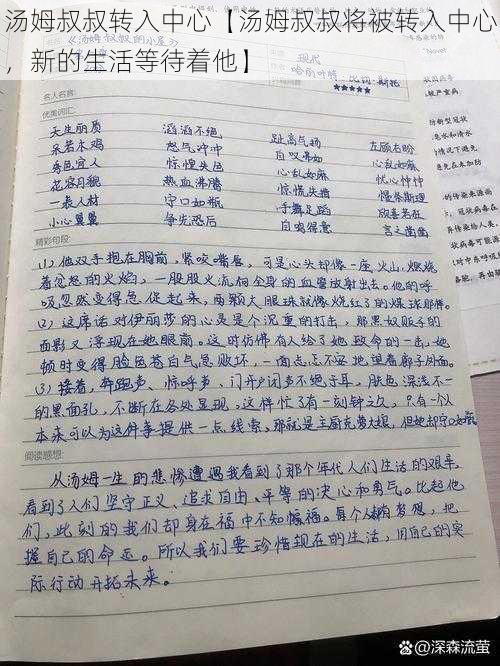 汤姆叔叔转入中心【汤姆叔叔将被转入中心
，新的生活等待着他】
《汤姆叔叔的小屋》
现代
★★★★★
名人名言:
优美词汇:
天生丽质 滔滔不绝 趾高气扬 左顾右盼
呆若木鸡 怒气冲冲 自叹弗如 心乱如麻
秀色宜人 惊惶失色 心乱如麻 忧心忡忡
花容月貌 热血沸腾 惊慌失措 慢条斯理
一表人材 守口如瓶 手舞足蹈
小心翼翼 争先恐后 自鸣得意
精彩句段:
(1)他双手抱在胸前,紧咬嘴唇,可是心头却像一座火山,燃烧
着忿怒的火焰,一股股火流向全身的血管放射出去。他的呼
吸忽然变得急促起来,两颗大眼珠就像烧红了的煤球那样。
(2)这席话对伊丽莎的心灵是个沉重的打击,那黑奴贩子的
面影又浮现在她眼前。这时仿佛有人给了她致命的一击,她
顿时变得脸色苍白气急败坏,一面忐忑不安地望着廊子外面。
(3)接着,奔跑声、惊呼声、门开户闭声不绝于耳,肤色深浅不一
的黑面孔,不断在各处显现,这样忙了有一刻钟之久,只有一个人
本来可以为这件事提供一点线索,那就是主厨克萝大娘,但她却守口如瓶
阅读感想:
从汤姆一生的悲惨遭遇我看到了那个年代人们生活的艰辛,
看到了人们坚守正义、追求自由、平等的决心和勇气。比起他
们,此刻的我们却身在福中不知福。每个人都有梦想,把
握自己的命运。所以我们要珍惜现在的生活,用自己的实
际行动开拓未来。
深森流萤